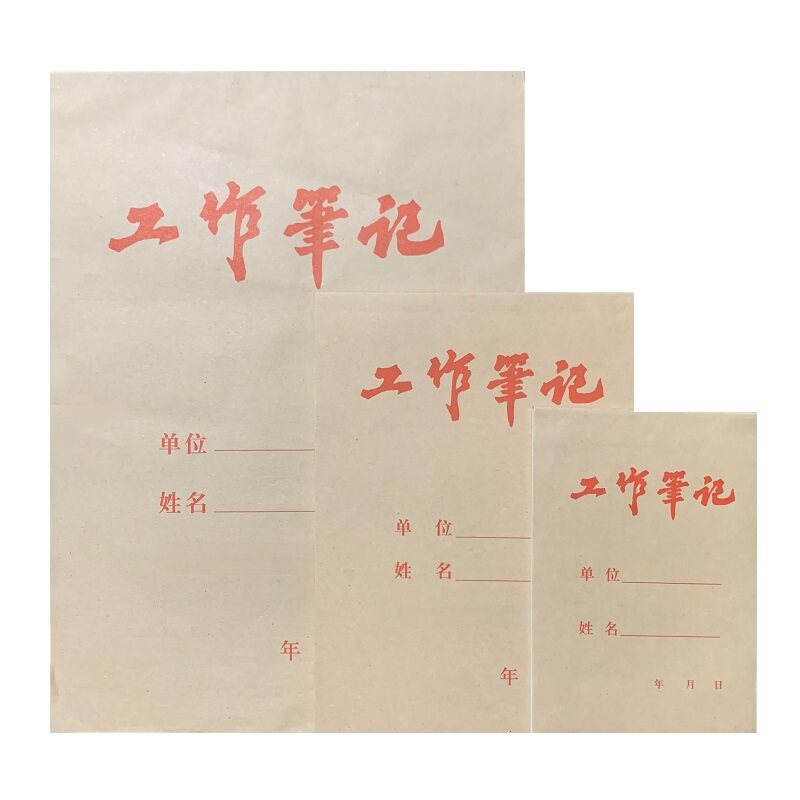 工作筆记
单位
姓名
年
工作筆记
单位
姓名
年
工作筆记
单位
姓名
年 月 日